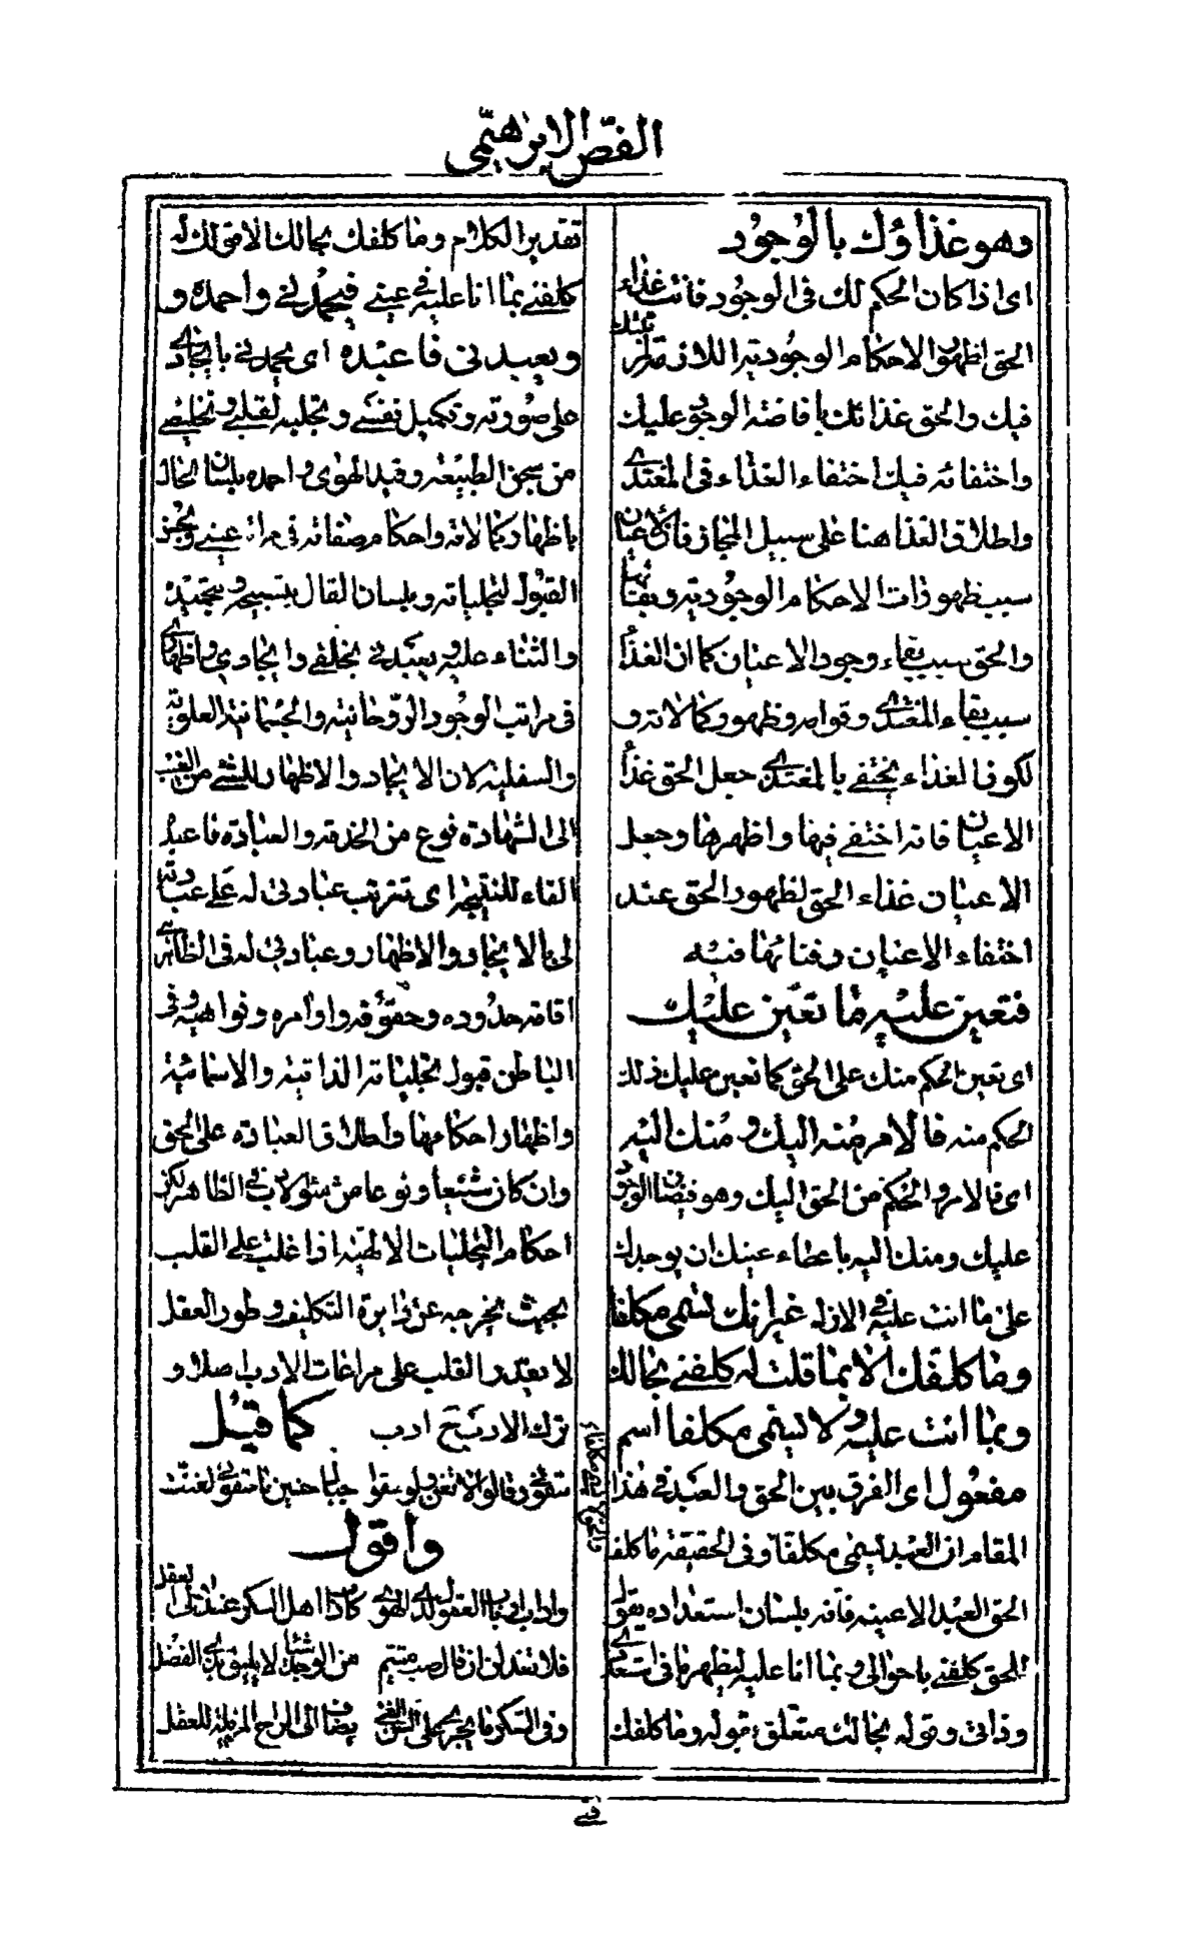 الفص الابرهيمى
وهو غذاؤك بالوجود
اى اذا كان الحكم لك فى الوجود فانت غذاء
الحق لظهور الاحكام الوجودية اللازمة لمرتبتك
فيك والحق غذائك بافاضة الوجود عليك
واختفائه فيك اختفاء الغذاء فى المغتذى
واطلاق الغذا هنا على سبيل المجاز فان الاعيان
سبب ظهورات الاحكام الوجودية وبقائها
والحق سبب بقاء وجود الاعيان كما ان الغذاء
سبب بقاء المغتذى وقوامه وظهور كمالاته و
لكون الغذاء يختفى بالمغتذى جعل الحق غذاء
الاعيان فانه اختفى فيها واظهرها وجعل
الاعيان غذاء الحق لظهور الحق عند
اختفاء الاعيان وفنائها فيه
فتعين عليه ما تعين عليك
اى تعين الحكم منك على الحق كما تعين عليك ذلك
الحكم منه فالامر منه اليك ومنك اليه
اى فالامر والحكم من الحق اليك وهو فيضان الوجود
عليك ومنك اليه باعطاء عينك ان يوجدك
على ما انت عليه فى الازل غير انك تسمى مكلفا
وما كلفك الا بما قلت له كلفنى بحالك
وبما انت عليه ولا يسمى مكلفا اسم
مفعول اى الفرق بين الحق والعبد فى هذا
المقام ان العبد يسمى مكلفا وفى الحقيقة ما كلف
الحق العبد الا عينه فانه بلسان استعداده يقول
للحق كلفنى باحوالى وبما انا عليه ليظهر ما فى استعدادى
وذاتى وقوله بحالك متعلق بقوله وما كلفك
تقدير الكلام وما كلفك بحالك الا قولك له
كلفنى بما انا عليه فى عينى فيحمدنى واحمده و
ويعبدنى فاعبده اى يحمدنى بايجادى
على صورته وتكميل نفسى وتجليه لقلبى وتخليصى
من سجن الطبيعة وقيد الهوى واحمده بلسان الحال
باظهار كمالاته واحكام صفاته فى مرآة عينى وبحسن
القبول لتجلياته وبلسان القال بتسبيحه وتحميده
والثناء عليه ويعبدنى بخلقى وايجادى واظهارى
فى مراتب الوجود الروحانية والجسمانية العلوية
والسفلية لان الايجاد والاظهار للشئ من الغيب
الى الشهادة نوع من الخدمة والعبادة فاعبده
الفاء للنتيجة اى تترتب عبادتى له على عبادته
لى بالايجاد والاظهار وعبادتى له فى الظاهر هى
اقامة حدوده وحقوقه واوامره ونواهيه وفى
الباطن قبول تجلياته الذاتية والاسمائية
واظهار احكامها واطلاق العبادة على الحق
وان كان شنيعا ونوعا من سوء الادب فى الظاهر لكن
احكام التجليات الالهية اذا غلبت على القلب
بحيث يخرجه عن دايرة التكليف وطور العقل
لا يقدر القلب على مراعات الادب اصلا و
ترك الادب ح ادب كما قيل
سقونى وقالوا لا تغن ولو سقوا جبال حنين ما سقونى لغنت
واقول
وآداب ارباب العقول لدى الهوى كآداب اهل السكر عند ذوى العقل
فلا تعذلن ان قال صب متيم من الوجد شيئا لا يليق بذى الفضل
وفى السكر ما يجرى على السن الفتى يضاف الى الراح المزيلة للعقل
فالحق لا يسمى مكلفا
فى